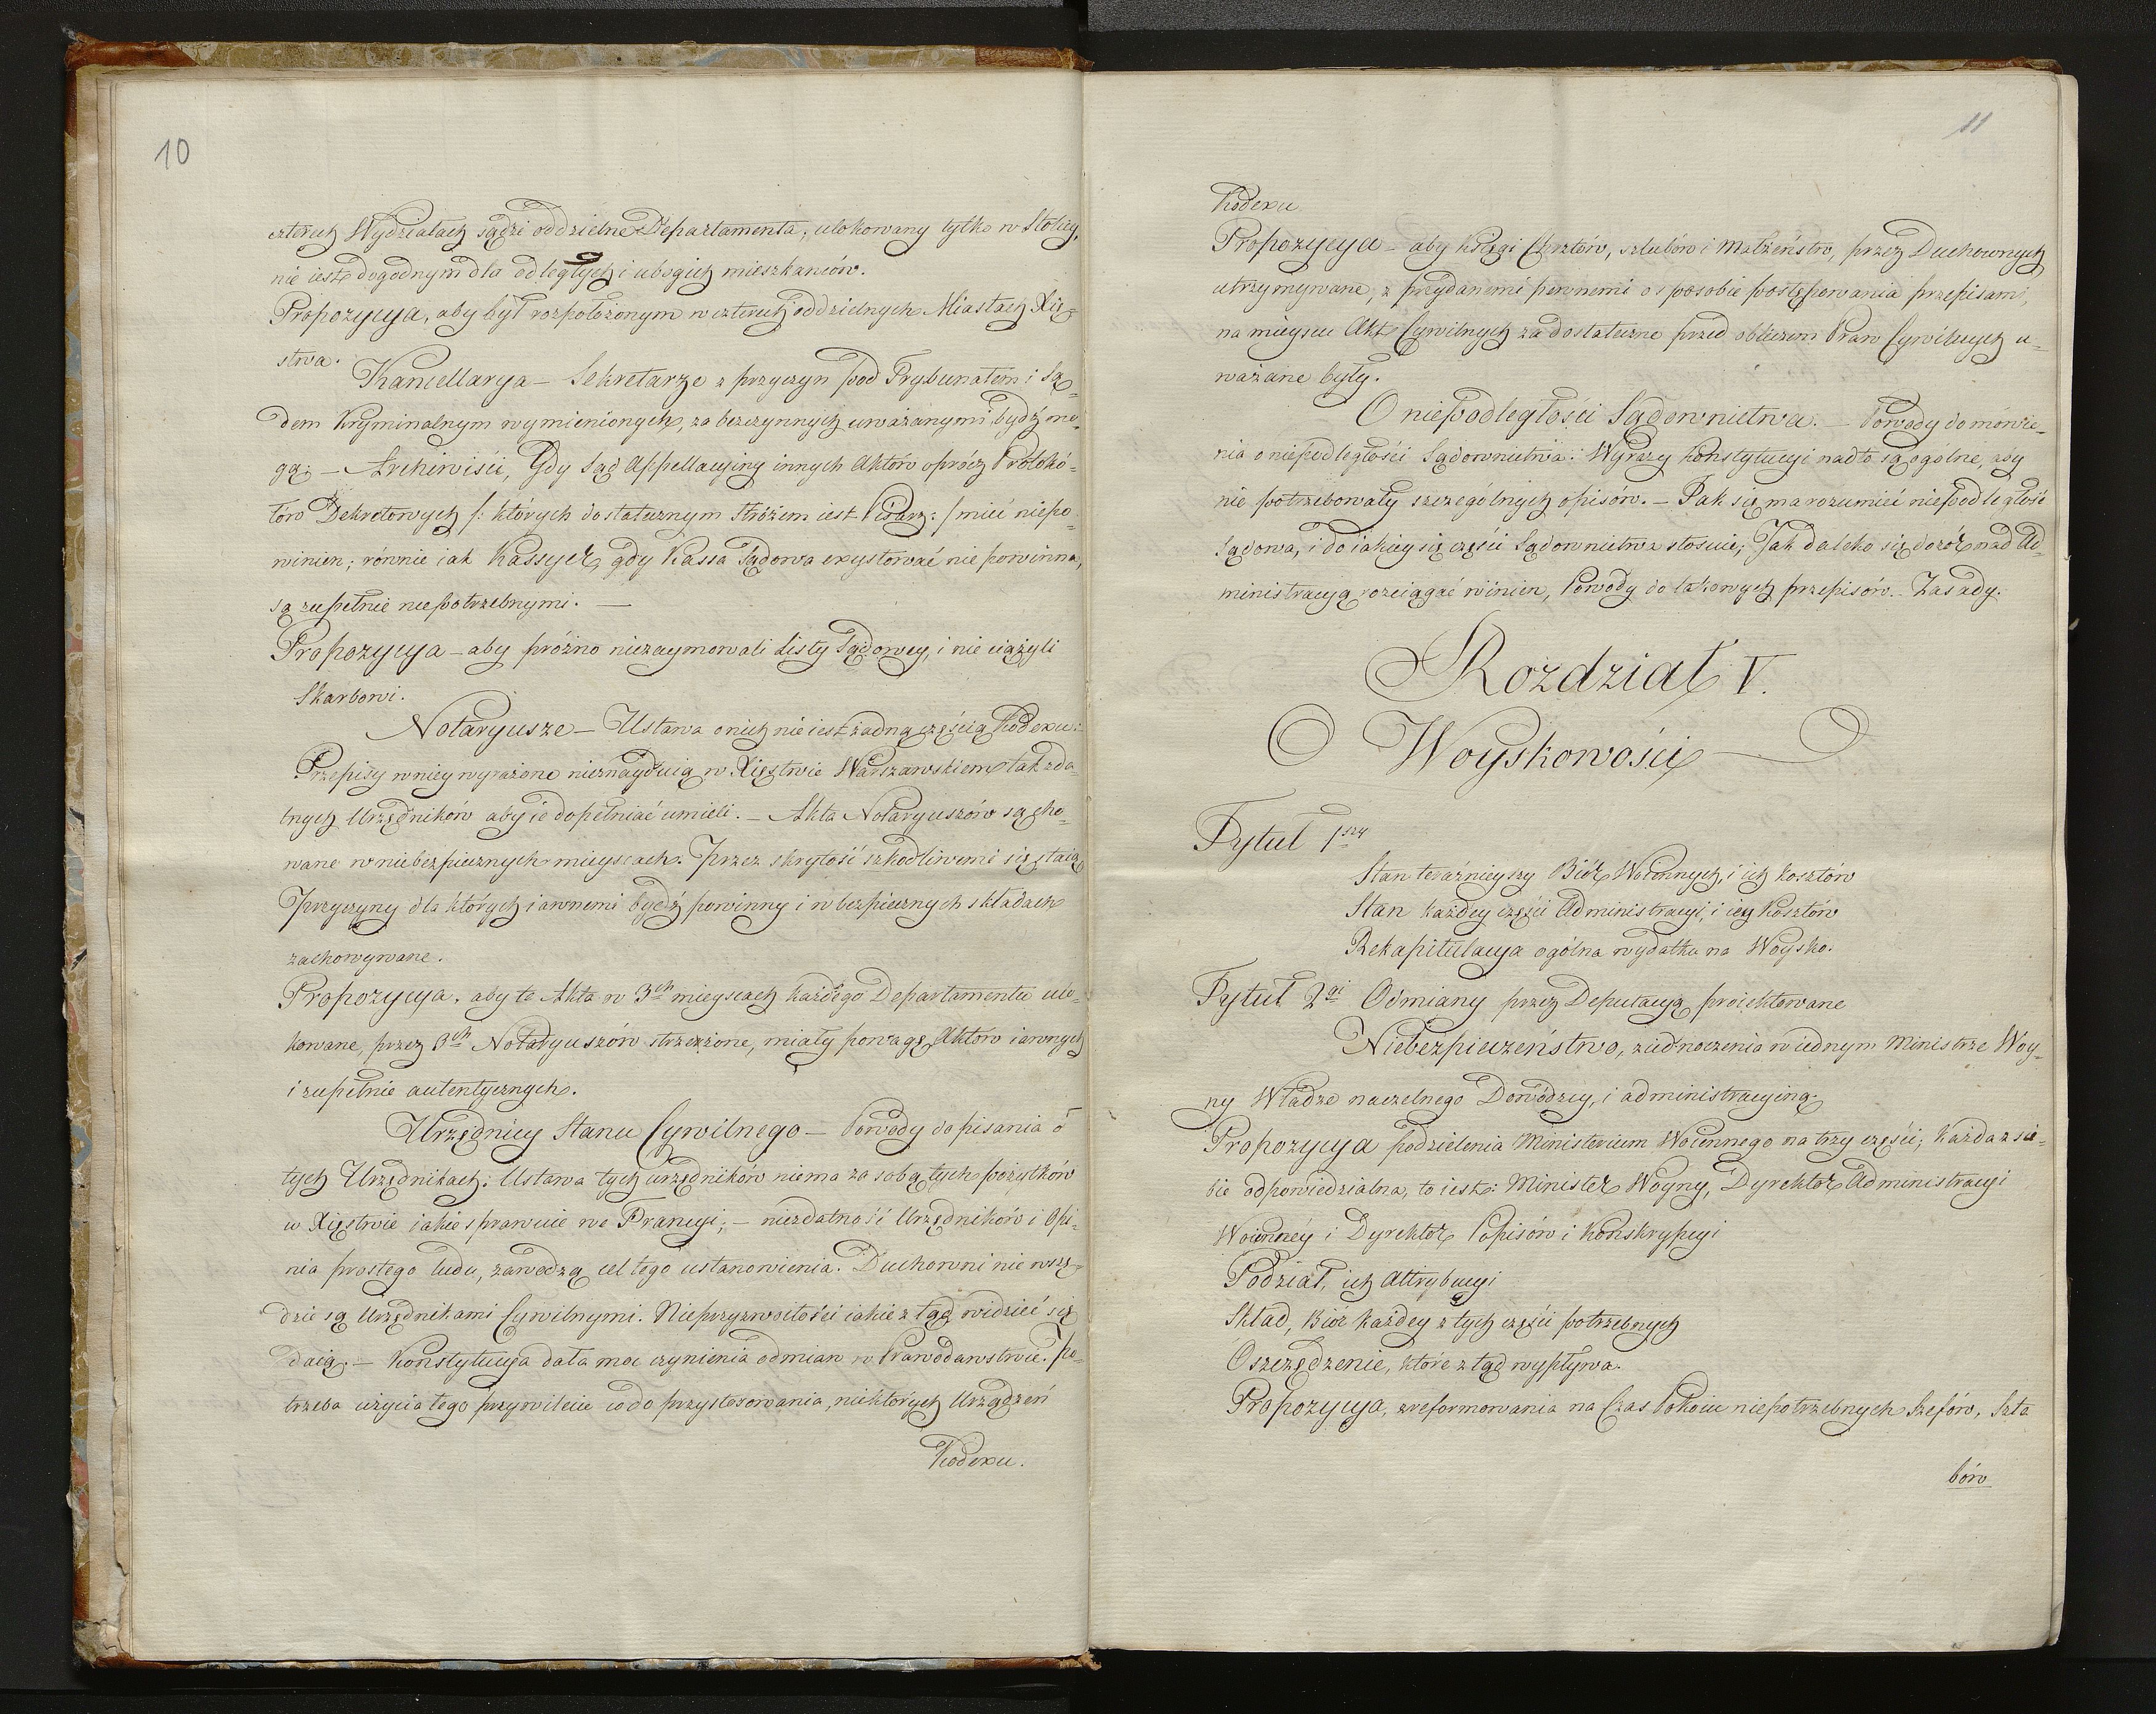 10
czterech Wydziałach sądzi oddzielne Departamenta, ulokowany tylko w Stolicy,
nie iest dogodnym dla odległych i ubogich mieszkańców.
Propozycya, aby był rozpołożonym w czterech oddzielnych Miastach Xię-
stwa.
Kancellarya – Sekretarze z przyczyn pod Trybunałem i Są-
dem Kryminalnym wymienionych, za bezczynnych uważanymi bydź mo-
gą; – Archiwiści, Gdy Sąd Appellacyiny innych Aktów oprócz Protokó-
łów Dekretowych /: których dostatecznym Stróżem iest Pisarz :/ mieć niepo-
winien; równie iak Kassyer, gdy Kassa Sądowa exystować nie powinna,
są zupełnie niepotrzebnymi. —
Propozycya – aby próżno niezaymowali Listy Sądowey, i nie ciążyli
Skarbowi.
Notaryusze – Ustawa o nich nie iest żadną częścią Kodexu:
Przepisy w niey wyrażone nieznayduią w Xięstwie Warszawskiem tak zda-
tnych Urzędników aby ie dopełniać umieli. – Akta Notaryuszów są cho-
wane w niebezpiecznych mieyscach. Przez skrytość szkodliwemi się staią
Przyczyny dla których iawnemi bydź powinny i w bezpiecznych składach
zachowywane.
Propozycya. aby te Akta w 3ch mieyscach każdego Departamentu ulo-
kowane, przez 3ch Notaryuszów strzeżone, miały powagę Aktów iawnych
i zupełnie autentycznych.
Urzędnicy Stanu Cywilnego – Powody do pisania o
tych Urzędnikach: Ustawa tych urzędników niema za sobą tych pożytków
w Xięstwie iakie sprawuie we Francyi; – niezdatność Urzędników i Opi-
nia prostego ludu, zawodzą cel tego ustanowienia. Duchowni nie wszę-
dzie są Urzędnikami Cywilnymi. Nieprzyzwoitości iakie z tąd widzieć się
daią. – Konstytucya dała moc czynienia odmian w Prawodawstwie. Po-
trzeba użycia tego przywileiu co do przystosowania, niektórych Urządzeń
Kodexu.
11
Kodexu
Propozycya – aby księgi Chrztów, szlubów i Małżeństw, przez Duchownych
utrzymywane, z przydanemi pewnemi o sposobie postępowania przepisami,
na mieyscu Akt Cywilnych za dostateczne przed obliczem Praw Cywilnych u-
ważane były.
O niepodległości Sądownictwa. – Powody do mówie-
nia o niepodległości Sądownictwa: Wyrazy Konstytucyi nadto są ogólne, aby
nie potrzebowały szczególnych opisów. – Jak się ma rozumieć niepodległość
Sądowa, i do iakiey się części Sądownictwa stosuie; Jak daleko się dozór nad Ad-
ministracyą rozciągać winien, Powody do takowych przepisów. Zasady.
Rozdział V.
O Woyskowości
Tytul 1szy
Stan teraźnieyszy Biór Woiennych, i ich kosztów
Stan każdey części Administracyi, i iey Kosztów
Rekapitulacya ogólna wydatku na Woysko.
Tytuł 2gi Odmiany przez Deputacyą proiektowane
Niebezpieczeństwo, ziednoczenia w iednym Ministrze Woy-
ny Władze naczelnego Dowódzcy, i administracyiną.
Propozycya podzielenia Ministerium Woiennego na trzy części; Każda z sie-
bie odpowiedzialna, to iest: Minister Woyny, Dyrektor Administracyi
Woienney i Dyrektor Popisów i Konskrypcyi
Podział, ich Attrybucyi
Skład, Biór każdey z tych części potrzebnych
Oszczędzenie, które z tąd wypływa.
Propozycya, zreformowania na Czas Pokoiu niepotrzebnych Szefów, Szta
bów